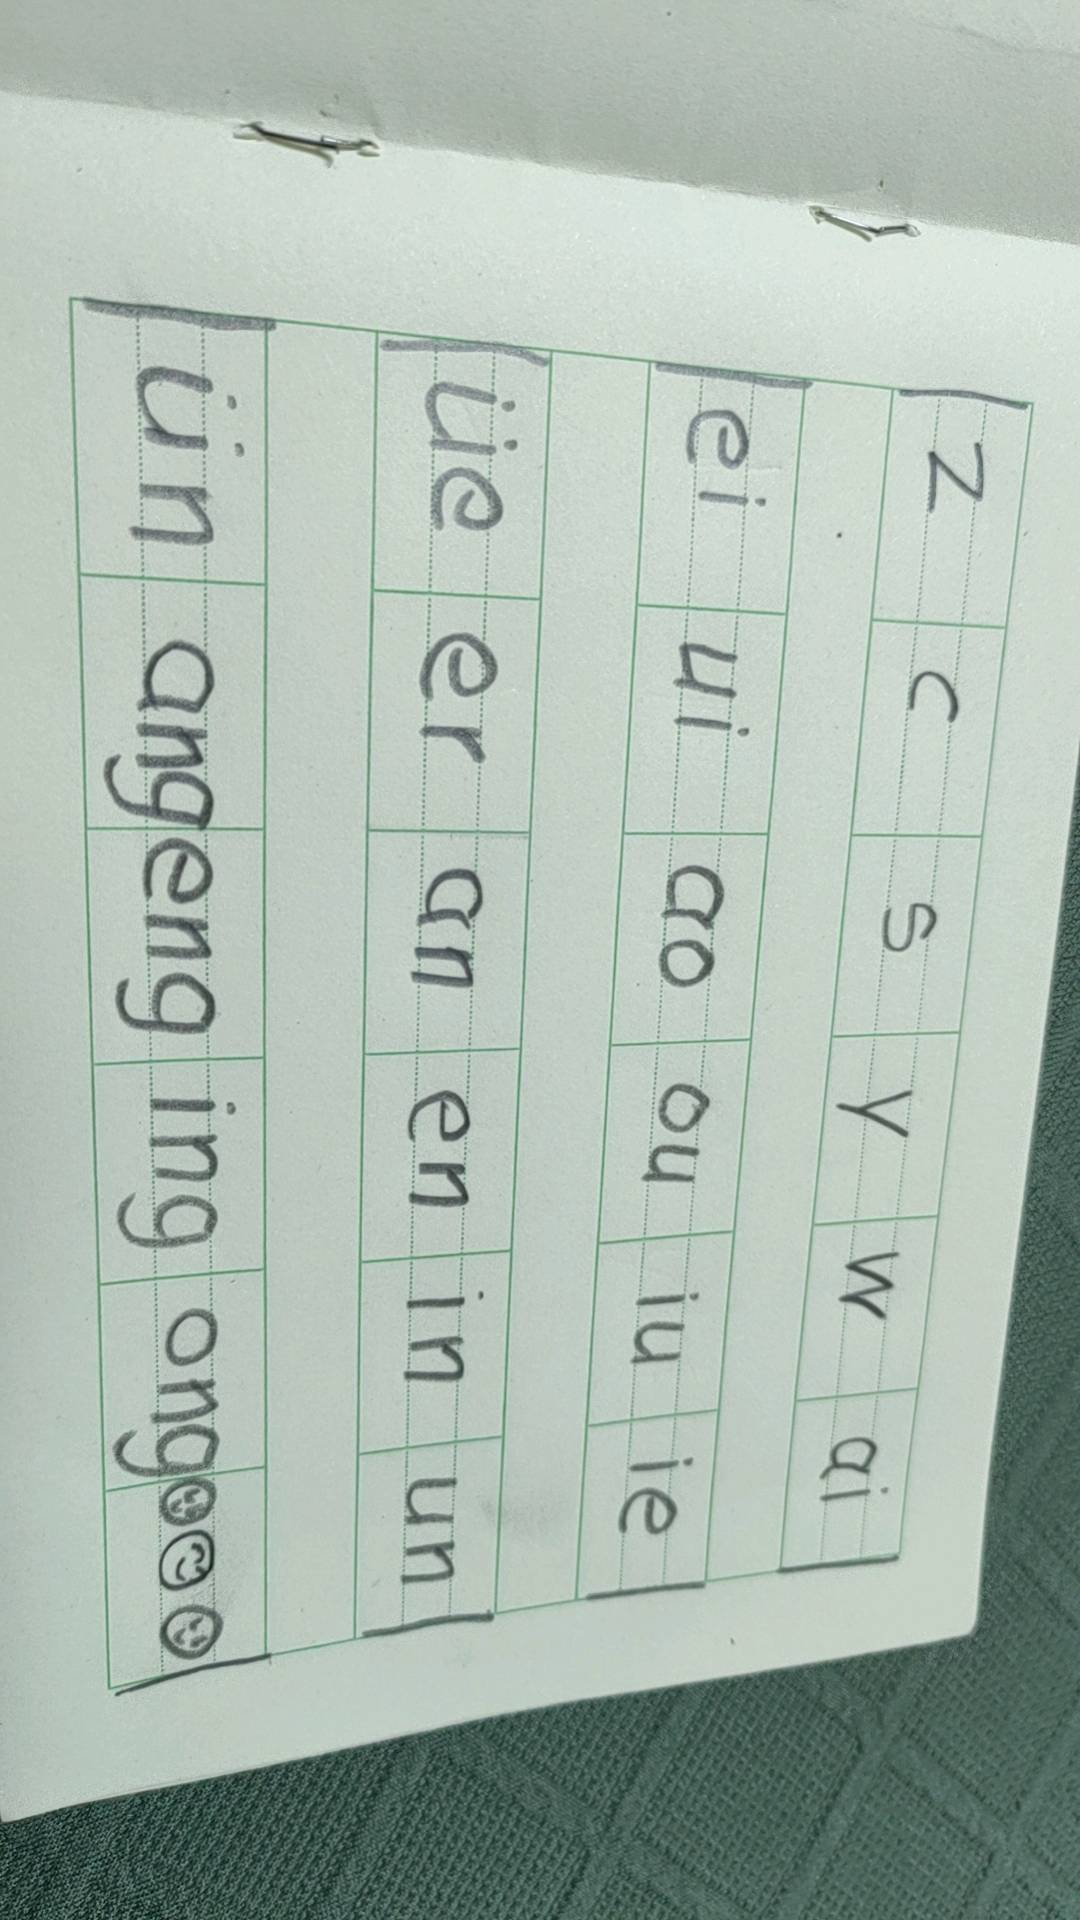 z c s y w ai
ei ui ao ou iu ie
üe er an en in un
ün ang eng ing ong